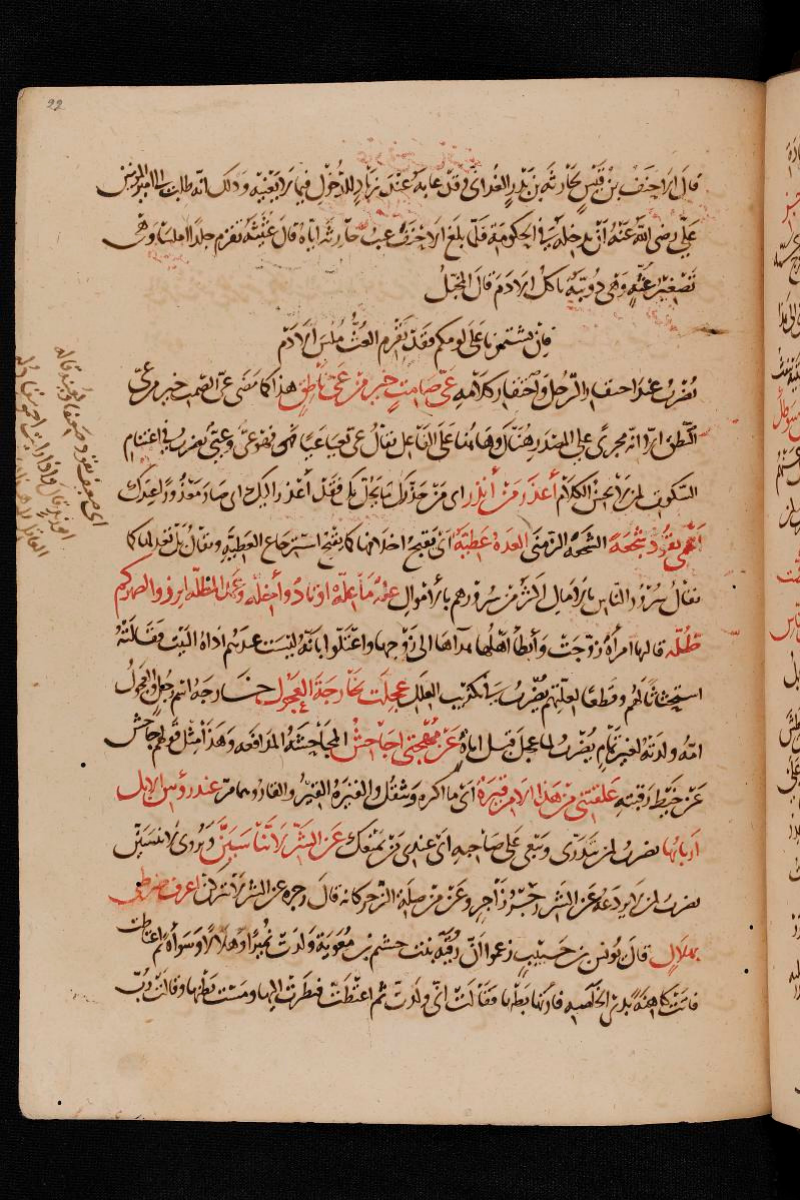 22
قال الاحنف بن قيس لحارثة بن بدر الغداني وقد عابه عند زياد للدخول فيما لا يعنيه وذلك انه طلب الى امير المؤمنين
علي رضي الله عنه ان يدخله في الحكومة فلما بلغ الاحنف عيب حارثة اياه قال عثيثة تقرم جلدا املسا وهي
تصغير عثة وهي دويبة تاكل الادم قال المخبل
فان تشتمونا على لومكم فقد تقرم العث ملس الادم
يضرب عند احتقار الرجل واحتقار كلامه عي صامت خير من عي ناطق هذا كما مضى عي الصمت خير من عي
النطق الا انه مجرى على المصدر هناك وهاهنا على الفاعل يقال عي يعيا عيا فهو عي وعيي يضرب في اغتنام
السكوت لمن لا يحسن الكلام اعذر من انذر اى من حذرك ما يحل بك فقد اعذر اليك اى صار معذورا عندك
اعمى يقود شجعة الشجعة الزمنى العدة عطية اى يقبح اخلافها كما يقبح استرجاع العطية ويقال بل تعدلها كما
يقال سرور الناس بالامال اكثر من سرورهم بالاموال علة ما علة اوتاد واخله وعمد المظله ابرزوا لصهركم
ظله قالتها امرأة زوجت وابطأ اهلها هداها الى زوجها واعتلوا بانه ليست عندهم اداة البيت فقالته
استحثاثا لهم وقطعا لعلتهم يضرب في تكذيب العلل عجلت بخارجة العجول خارجة اسم رجل والعجول
امه ولدته لغير تمام يضرب لما عجل قبل اناه عن مهجتي اجاحش المجاحشة المدافعة وهذا مثل قولهم جاحش
عن خيط رقبته علقتني من هذا الامر قيرة اى ما اكره وشغل والقيرة القير والقار وهما مر عند رؤس الابل
اربابها يضرب لمن يتدرى ويبغى على صاحبه اى عندى من يمنعك عن الشر لا تناسين ويروى لا تنسين
يضرب لمن لا يردعه عن الشر زجر زاجر وعن من صلة الزجر كانه قال زجره عن الشر لا تتركن اعرف ضرطي
بهلال قال يونس بن حبيب زعموا ان رقية بنت جشم بن معوية ولدت نميرا وهلالا وسوأة ثم اعتاطت
فاتت كاهنة بذى الخلصة فارتها بطنها وقالت انى ولدت ثم اعتطت فنظرت اليها ومست بطنها وقالت رب